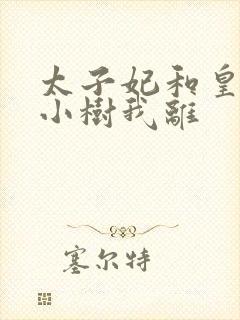 太子妃和皇
小樹我離
塞尔特